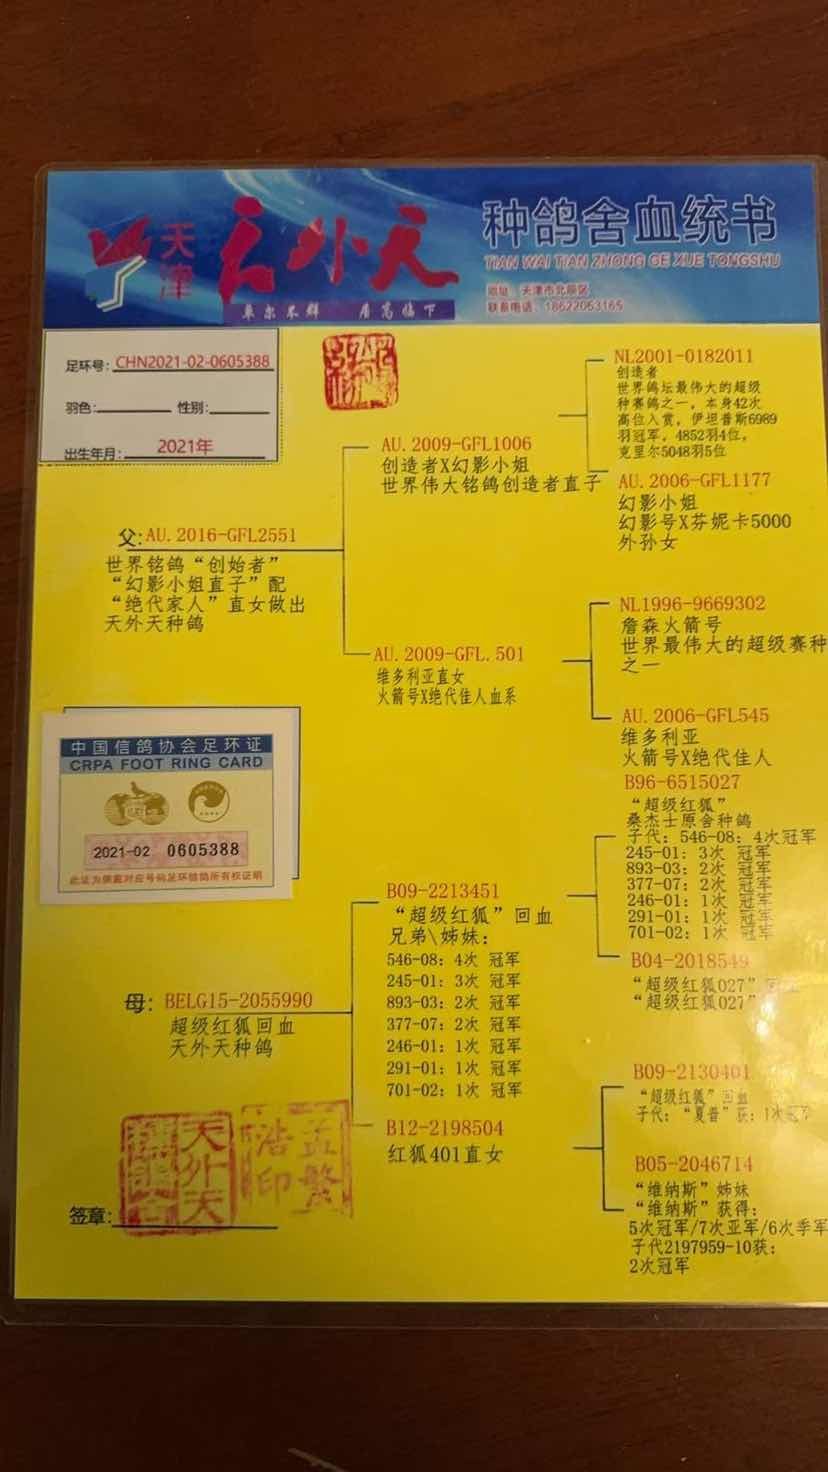 天津
天外天
卓尔不群 居高临下
种鸽舍血统书
TIAN WAI TIAN ZHONG GE XUE TONGSHU
地址：天津市北辰区
联系电话：18622053165
足环号：CHN2021-02-0605388
羽色： 性别：
出生年月：2021年
父：AU.2016-GFL2551
世界铭鸽“创始者”
“幻影小姐直子”配
“绝代家人”直女做出
天外天种鸽
AU.2009-GFL1006
创造者X幻影小姐
世界伟大铭鸽创造者直子
NL2001-0182011
创造者
世界鸽坛最伟大的超级
种赛鸽之一，本身42次
高位入赏，伊坦普斯6989
羽冠军，4852羽4位，
克里尔5048羽5位
AU.2006-GFL1177
幻影小姐
幻影号X芬妮卡5000
外孙女
AU.2009-GFL.501
维多利亚直女
火箭号X绝代佳人血系
NL1996-9669302
詹森火箭号
世界最伟大的超级赛种
之一
AU.2006-GFL545
维多利亚
火箭号X绝代佳人
中国信鸽协会足环证
CRPA FOOT RING CARD
2021-02 0605388
此证为佩戴对应号码足环信鸽所有权证明
母：BELG15-2055990
超级红狐回血
天外天种鸽
B09-2213451
“超级红狐”回血
兄弟\姊妹：
546-08：4次 冠军
245-01：3次 冠军
893-03：2次 冠军
377-07：2次 冠军
246-01：1次 冠军
291-01：1次 冠军
701-02：1次 冠军
B96-6515027
“超级红狐”
桑杰士原舍种鸽
子代：546-08：4次冠军
245-01：3次 冠军
893-03：2次 冠军
377-07：2次 冠军
246-01：1次 冠军
291-01：1次 冠军
701-02：1次 冠军
B04-2018549
“超级红狐027”回血
“超级红狐027”
B12-2198504
红狐401直女
B09-2130401
“超级红狐”回血
子代：“夏普”获：1次冠军
B05-2046714
“维纳斯”姊妹
“维纳斯”获得：
5次冠军/7次亚军/6次季军
子代2197959-10获：
2次冠军
签章：
天外天
孟繁浩印